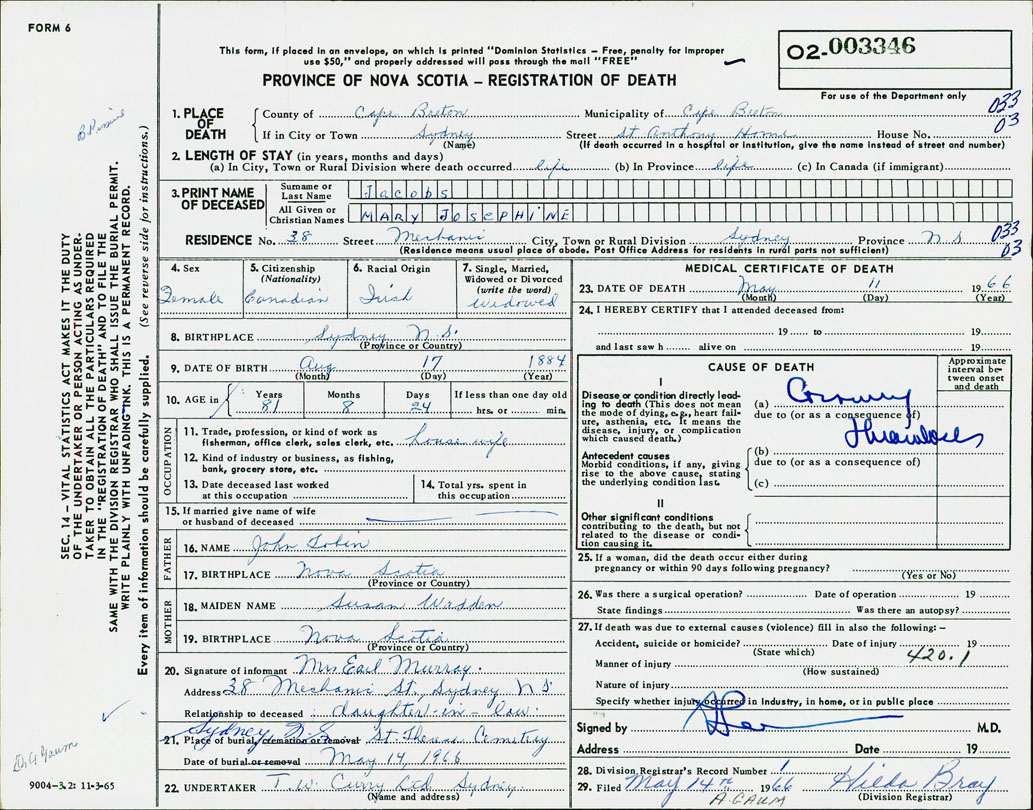 FORM 6
This form, if placed in an envelope, on which is printed "Dominion Statistics – Free, penalty for improper
use $50," and properly addressed will pass through the mail "FREE"
PROVINCE OF NOVA SCOTIA – REGISTRATION OF DEATH
02-003346
For use of the Department only
033
03
1. PLACE OF DEATH
County of Cape Breton Municipality of Cape Breton
If in City or Town Sydney Street St Anthony Home House No.
(Name) (If death occurred in a hospital or institution, give the name instead of street and number)
2. LENGTH OF STAY (in years, months and days)
(a) In City, Town or Rural Division where death occurred life (b) In Province life (c) In Canada (if immigrant)
3. PRINT NAME OF DECEASED
Surname or Last Name Jacobs
All Given or Christian Names MARY JOSEPHINE
RESIDENCE No. 38 Street Mechanic City, Town or Rural Division Sydney Province N S
033
03
(Residence means usual place of abode. Post Office Address for residents in rural parts not sufficient)
4. Sex
Female
5. Citizenship
(Nationality)
Canadian
6. Racial Origin
Irish
7. Single, Married,
Widowed or Divorced
(write the word)
Widowed
8. BIRTHPLACE Sydney N.S.
(Province or Country)
9. DATE OF BIRTH Aug 17 1884
(Month) (Day) (Year)
10. AGE in
Years Months Days If less than one day old
81 8 24 hrs. or min.
OCCUPATION
11. Trade, profession, or kind of work as
fisherman, office clerk, sales clerk, etc. house wife
12. Kind of industry or business, as fishing,
bank, grocery store, etc.
13. Date deceased last worked
at this occupation
14. Total yrs. spent in
this occupation
15. If married give name of wife
or husband of deceased
FATHER
16. NAME John Tobin
17. BIRTHPLACE Nova Scotia
(Province or Country)
MOTHER
18. MAIDEN NAME Susan Wadden
19. BIRTHPLACE Nova Scotia
(Province or Country)
20. Signature of informant Mrs Earl Murray.
Address 38 Mechanic St. Sydney N S
Relationship to deceased daughter-in-law.
Sydney N.S.
21. Place of burial, cremation or removal St Theresa Cemetery
Date of burial or removal May 14, 1966
22. UNDERTAKER T.W. Curry Ltd Sydney.
(Name and address)
MEDICAL CERTIFICATE OF DEATH
23. DATE OF DEATH May 11 1966
(Month) (Day) (Year)
24. I HEREBY CERTIFY that I attended deceased from:
19 to 19
and last saw h alive on 19
CAUSE OF DEATH
Approximate
interval be-
tween onset
and death
I
Disease or condition directly lead-
ing to death (This does not mean
the mode of dying, e.g., heart fail-
ure, asthenia, etc. It means the
disease, injury, or complication
which caused death.)
(a) Coronary
due to (or as a consequence of)
Thrombosis
Antecedent causes
Morbid conditions, if any, giving
rise to the above cause, stating
the underlying condition last.
(b)
due to (or as a consequence of)
(c)
II
Other significant conditions
contributing to the death, but not
related to the disease or condi-
tion causing it.
25. If a woman, did the death occur either during
pregnancy or within 90 days following pregnancy?
(Yes or No)
26. Was there a surgical operation? Date of operation 19
State findings Was there an autopsy?
27. If death was due to external causes (violence) fill in also the following: –
Accident, suicide or homicide? Date of injury 19
(State which)
420.1
Manner of injury
(How sustained)
Nature of injury
Specify whether injury occurred in Industry, in home, or in public place
Signed by M.D.
Address Date 19
28. Division Registrar's Record Number 1
29. Filed May 14th 1966 Hilda Bray
(Division Registrar)
A. GAUM
SEC. 14 – VITAL STATISTICS ACT MAKES IT THE DUTY
OF THE UNDERTAKER OR PERSON ACTING AS UNDER-
TAKER TO OBTAIN ALL THE PARTICULARS REQUIRED
IN THE "REGISTRATION OF DEATH" AND TO FILE THE
SAME WITH THE DIVISION REGISTRAR WHO SHALL ISSUE THE BURIAL PERMIT.
WRITE PLAINLY WITH UNFADING INK. THIS IS A PERMANENT RECORD.
Every item of information should be carefully supplied. (See reverse side for instructions.)
Dr. A Gaum
9004-3.2: 11-3-65